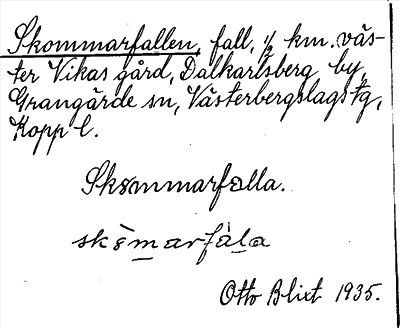 Skommarfallen, fall, ½ km. väs-
ter Vikas gård, Dalkarlsberg by,
Grangärde sn, Västerbergslags tg,
Kopp l.
Skommarfalla.
skòmarfàla
Otto Blixt 1935.